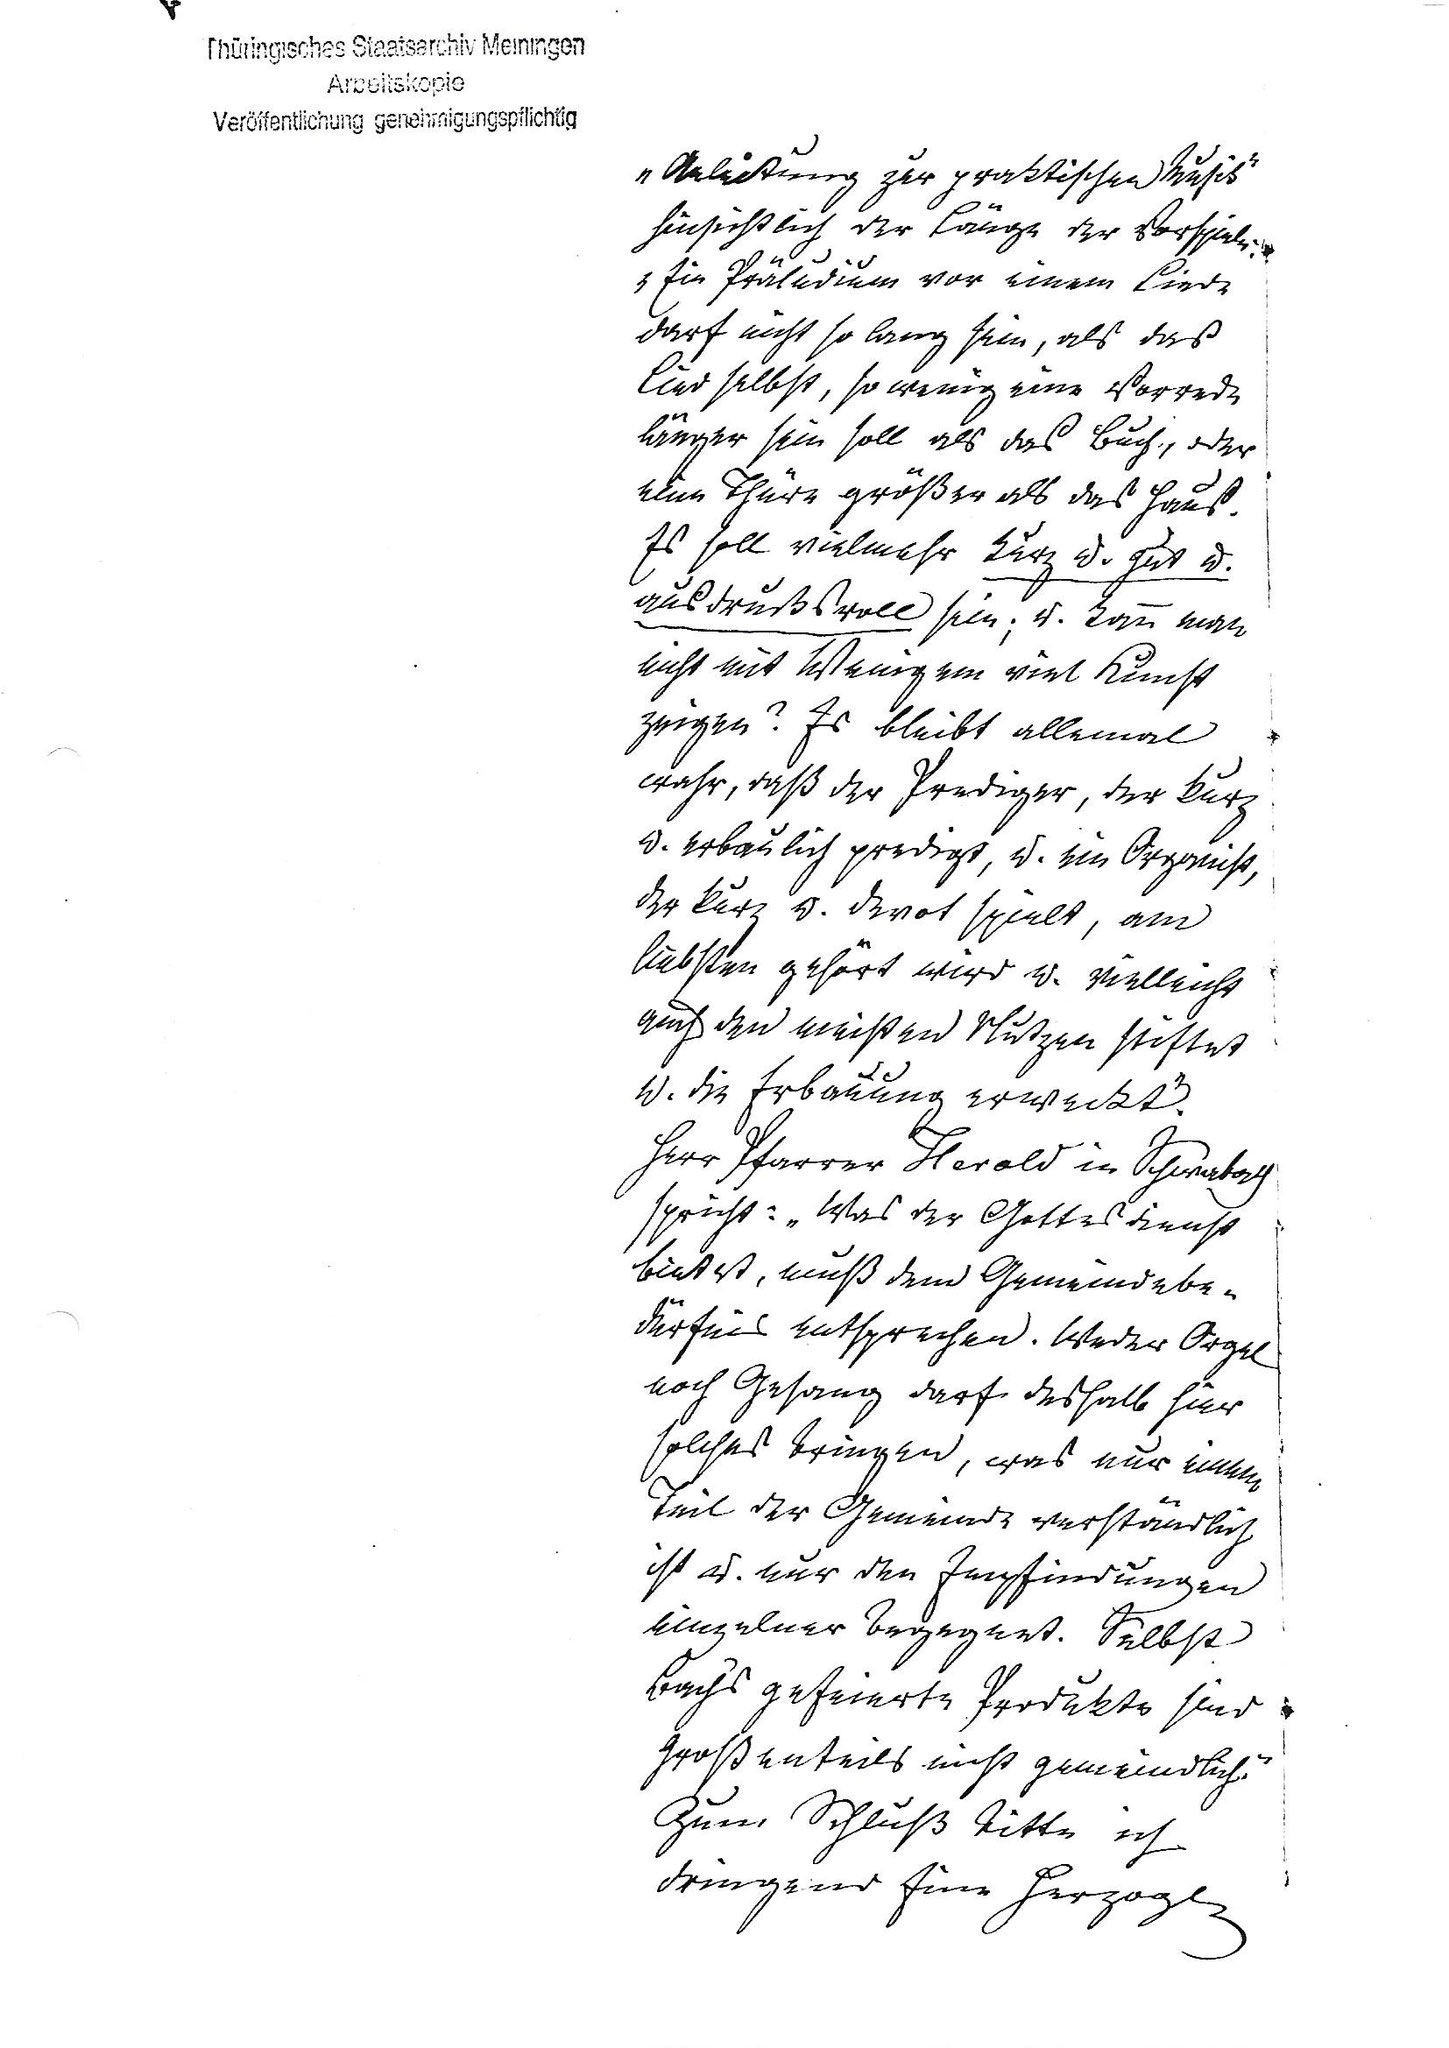 Thüringisches Staatsarchiv Meiningen
Arbeitskopie
Veröffentlichung genehmigungspflichtig
„Anleitung zur praktischen Musik“
hinsichtlich der Länge der Vorspiele:
„Ein Präludium vor einem Liede
darf nicht so lang sein, als das
Lied selbst, so wenig eine Vorrede
länger sein soll als das Buch, oder
eine Thüre größer als das Haus.
Es soll vielmehr kurz u. gut u.
ausdrucksvoll sein; u. kan̄ man
nicht mit Wenigem viel Kunst
zeigen? Es bleibt allemal
wahr, daß der Prediger, der kurz
u. erbaulich predigt, u. ein Organist,
der kurz u. devot spielt, am
liebsten gehört wird u. vielleicht
auch den meisten Nutzen stiftet
u. die Erbauung erweckt“.
Herr Pfarrer Herold in Schwabach
spricht: „Was der Gottesdienst
bietet, muß dem Gemeindebe-
dürfnis entsprechen. Weder Orgel
noch Gesang darf deshalb hier
solches bringen, was nur einem
Teil der Gemeinde verständlich
ist u. nur den Empfindungen
einzelner begegnet. Selbst
Bach's gefeierte Produkte sind
großenteils nicht gemeindlich.“
Zum Schluß bitte ich
dringend Eine Herzogl.